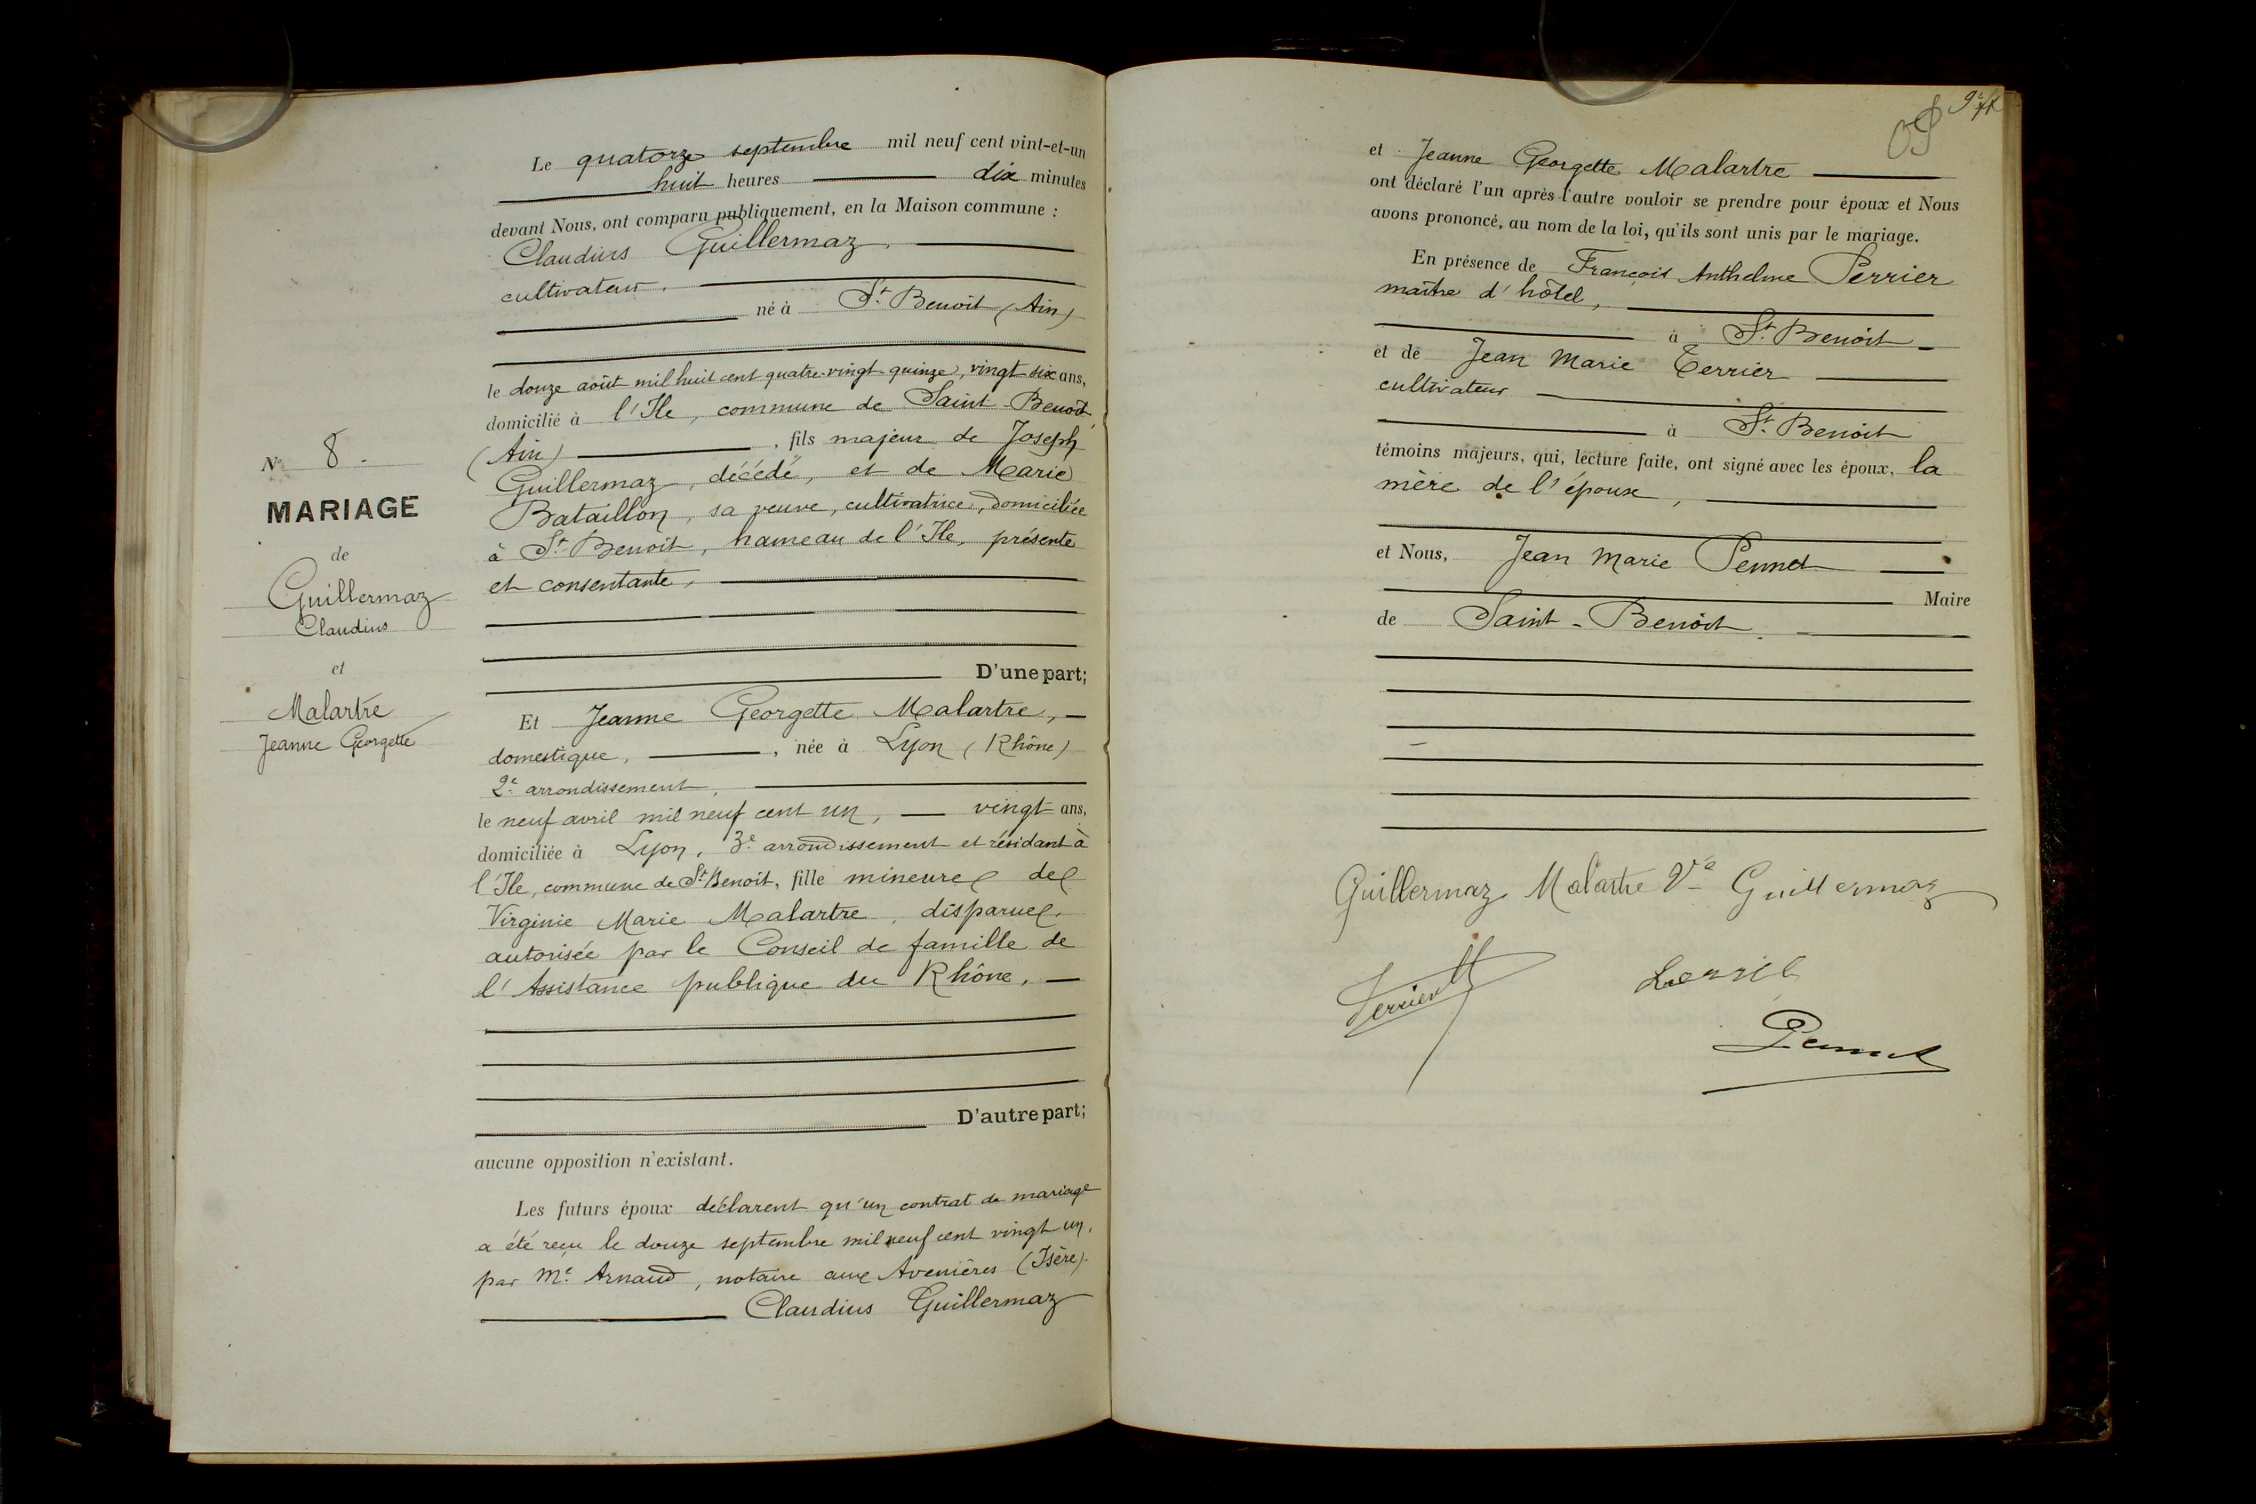 N° 8.
MARIAGE
de
Guillermaz
Claudius
et
Malartre
Jeanne Georgette
Le quatorze septembre mil neuf cent vint-et-un
huit heures dix minutes
devant Nous, ont comparu publiquement, en la Maison commune :
Claudius Guillermaz,
cultivateur,
né à St Benoit (Ain)
le douze août mil huit cent quatre-vingt-quinze, vingt six ans,
domicilié à l'Ile, commune de Saint-Benoit,
(Ain), fils majeur de Joseph
Guillermaz, décédé, et de Marie
Bataillon, sa veuve, cultivatrice, domiciliée
à St Benoit, hameau de l'Ile, présente
et consentante,
D'une part;
Et Jeanne Georgette Malartre,
domestique, née à Lyon (Rhône)
2e arrondissement,
le neuf avril mil neuf cent un, vingt ans,
domiciliée à Lyon, 3e arrondissement et résidant à
l'Ile, commune de St Benoit, fille mineure de
Virginie Marie Malartre, disparue,
autorisée par le Conseil de famille de
l'Assistance publique du Rhône,
D'autre part;
aucune opposition n'existant.
Les futurs époux déclarent qu'un contrat de mariage
a été reçu le douze septembre mil neuf cent vingt un,
par Me Arnaud, notaire aux Avenières (Isère).
Claudius Guillermaz
et Jeanne Georgette Malartre
ont déclaré l'un après l'autre vouloir se prendre pour époux et Nous
avons prononcé, au nom de la loi, qu'ils sont unis par le mariage.
En présence de François Anthelme Perrier
maître d'hôtel,
à St Benoit
et de Jean Marie Terrier
cultivateur
à St Benoit
témoins majeurs, qui, lecture faite, ont signé avec les époux, la
mère de l'époux,
et Nous, Jean Marie Pennet
Maire
de Saint-Benoit.
Guillermaz Malartre Ve Guillermaz
Pennet